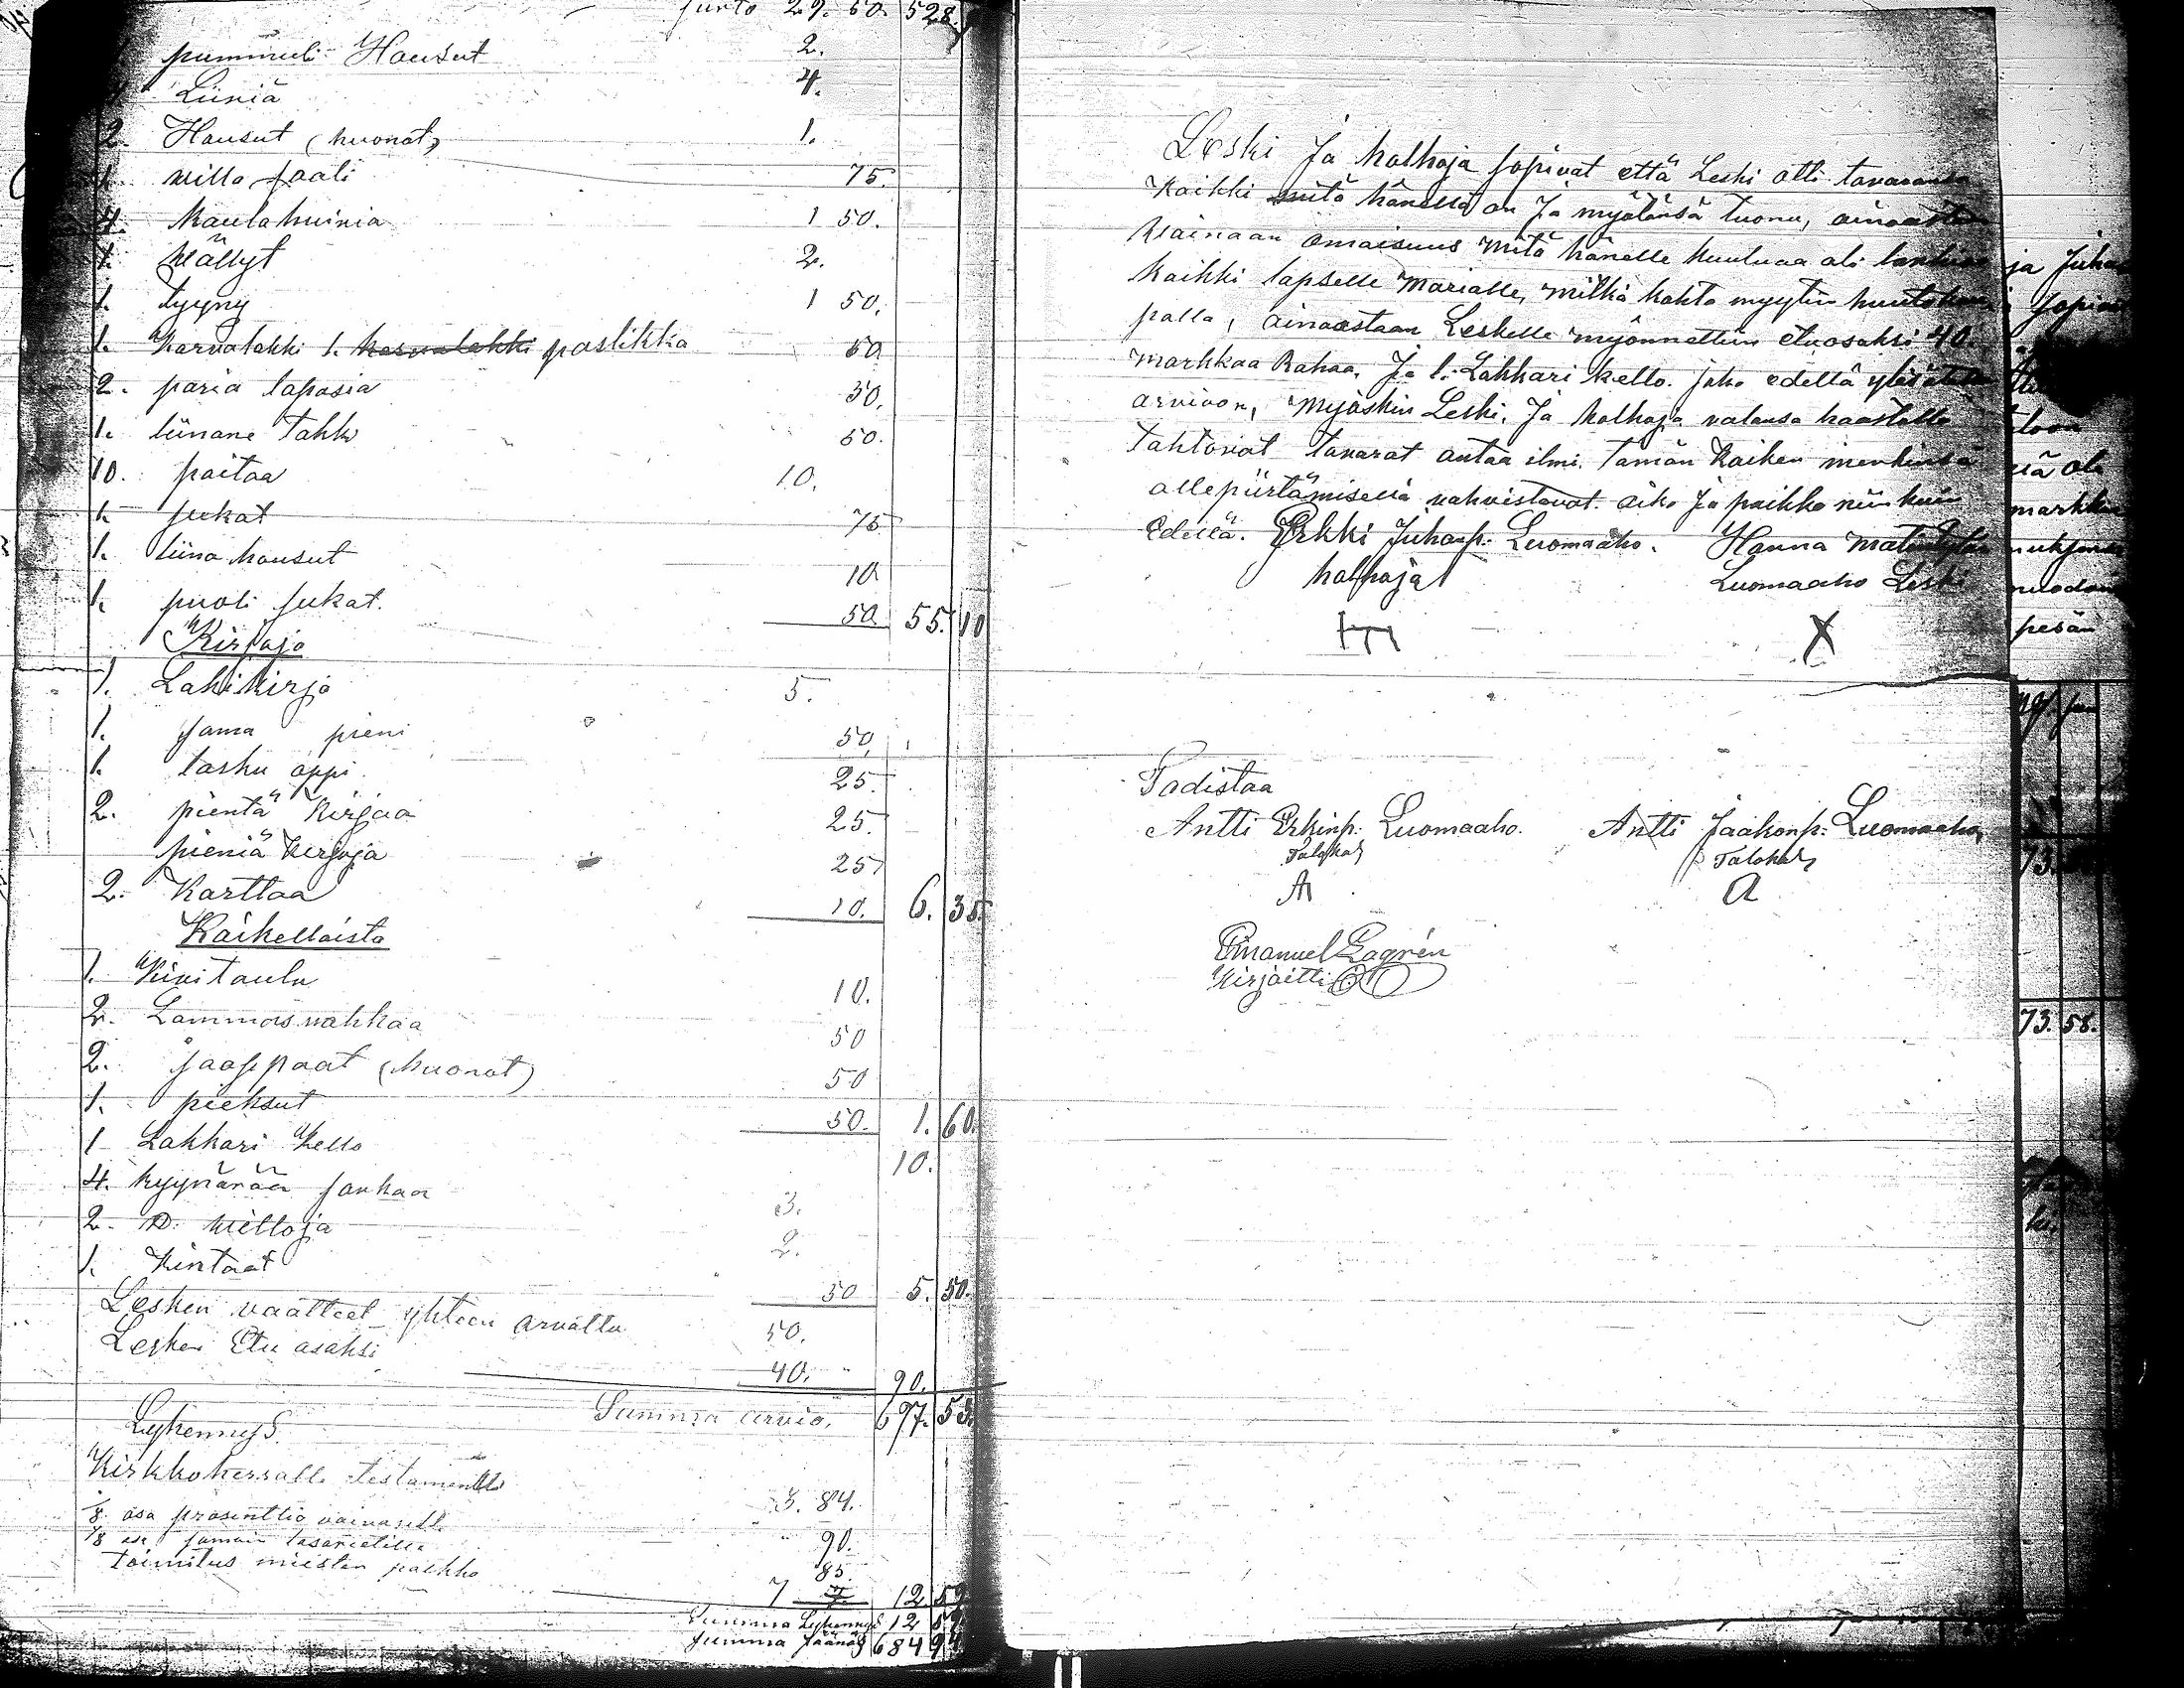 29. 60. 528.
pummuli Housut 2.
Liiniä 4.
2. Housut (huonot) 1.
1. villa saali 75.
4. kaulahuinia 1 50.
1. Vällyt 2.
1. tyyny 1 50.
1. Karvalakki 1. karvalakki paslikka 50.
2. paria tapasia 50.
1. liinane Takki 50.
10. paitaa 10.
1. sukat 75
1. liina housut 10
1. puoli sukat. 50. 55. 10
Kirjoja
1. Lakikirja 5.
1. sama pieni 50.
1. tasku oppi 25.
2. pientä Kirjaa 25.
pieniä Kirjoja 25
2. Karttaa 10. 6. 35.
Kaikellaista
1. Kivitaulu 10.
2. Lammasnahkaa 50
2. saappaat (huonot) 50
1. pieksut 50. 1. 60.
1 Lakkari Kello 10.
4. kyynärää sarkaa 3.
2. villoja 2.
1. Kintaat 50 5. 50.
Lesken vaatteet yhteen arvattu 50.
Lesken Etu osaksi 40. 90.
Summa arvio. 697. 53.
Lyhennys.
Kirkkoherralle testamentti 3. 84.
1/8 osa prosenttia vaivasille 90.
1/8 osa samoin lasaretille 85.
toimitus miesten palkka 7 12. 59
Summa Lyhennys 12 59
Summa Säänös 684 94
Leski Ja holhoja sopivat että Leski otti tavaransa
Kaikki mitä hänellä on Ja myötänsä tuonu, ainoastan
Vainaan omaisuus mitä hänelle kuuluvaa oli
Kaikki lapselle Marialle, mitkä kohta myytiin huutokau
palla, ainoastaan Leskelle myönnettiin etuosaksi 40.
markkaa Rahaa, Ja 1. Lakkari kello. joko edellä
arvioon, myöskin Leski, Ja holhoja valansa haastolla
Tahtovat tavarat antaa ilmi. Tämän Kaiken
allepiirtämisellä vahvistavat. aika Ja paikka niin kuin
Edellä. Erkki Juhanp. Luomaaho. Hanna
holhoja Luomaaho Leski
X
Todistaa
Antti Erkinp. Luomaaho. Antti Jaakonp. Luomaaho,
Talokas Talokas
A A
Emanuel Lagrén
Kirjoitti
ja Juha
Sopiva
markka
pesän
73.
73. 58.